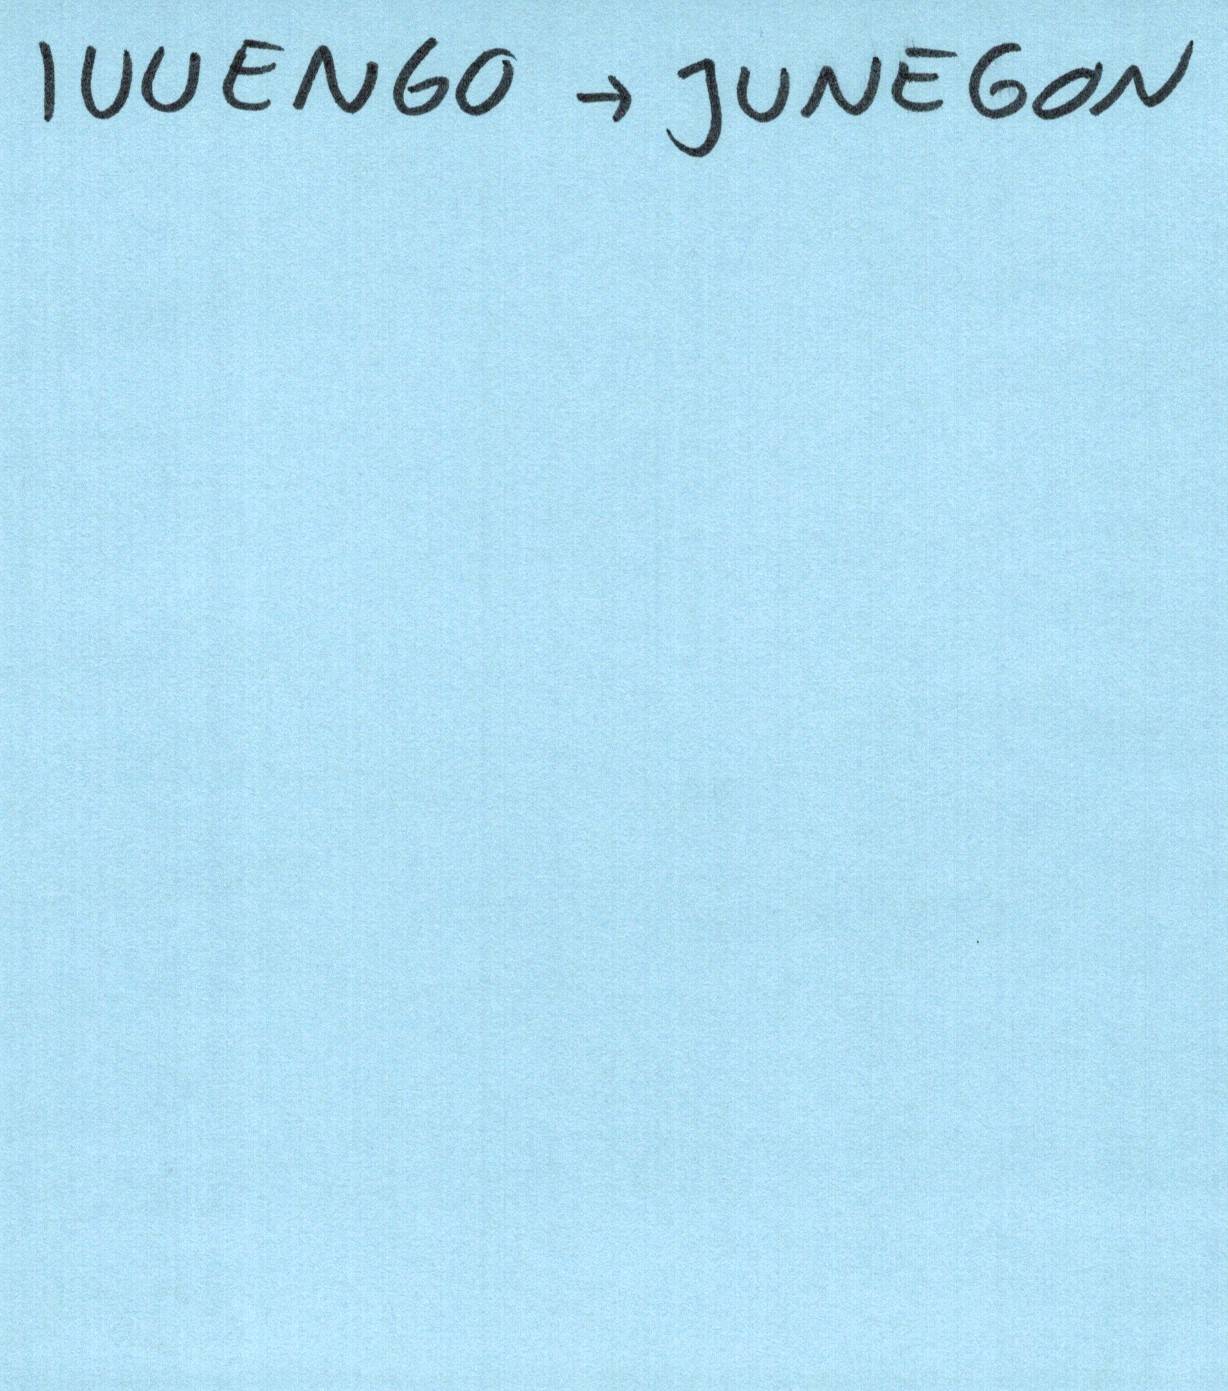 IUUENGO → JUNEGON